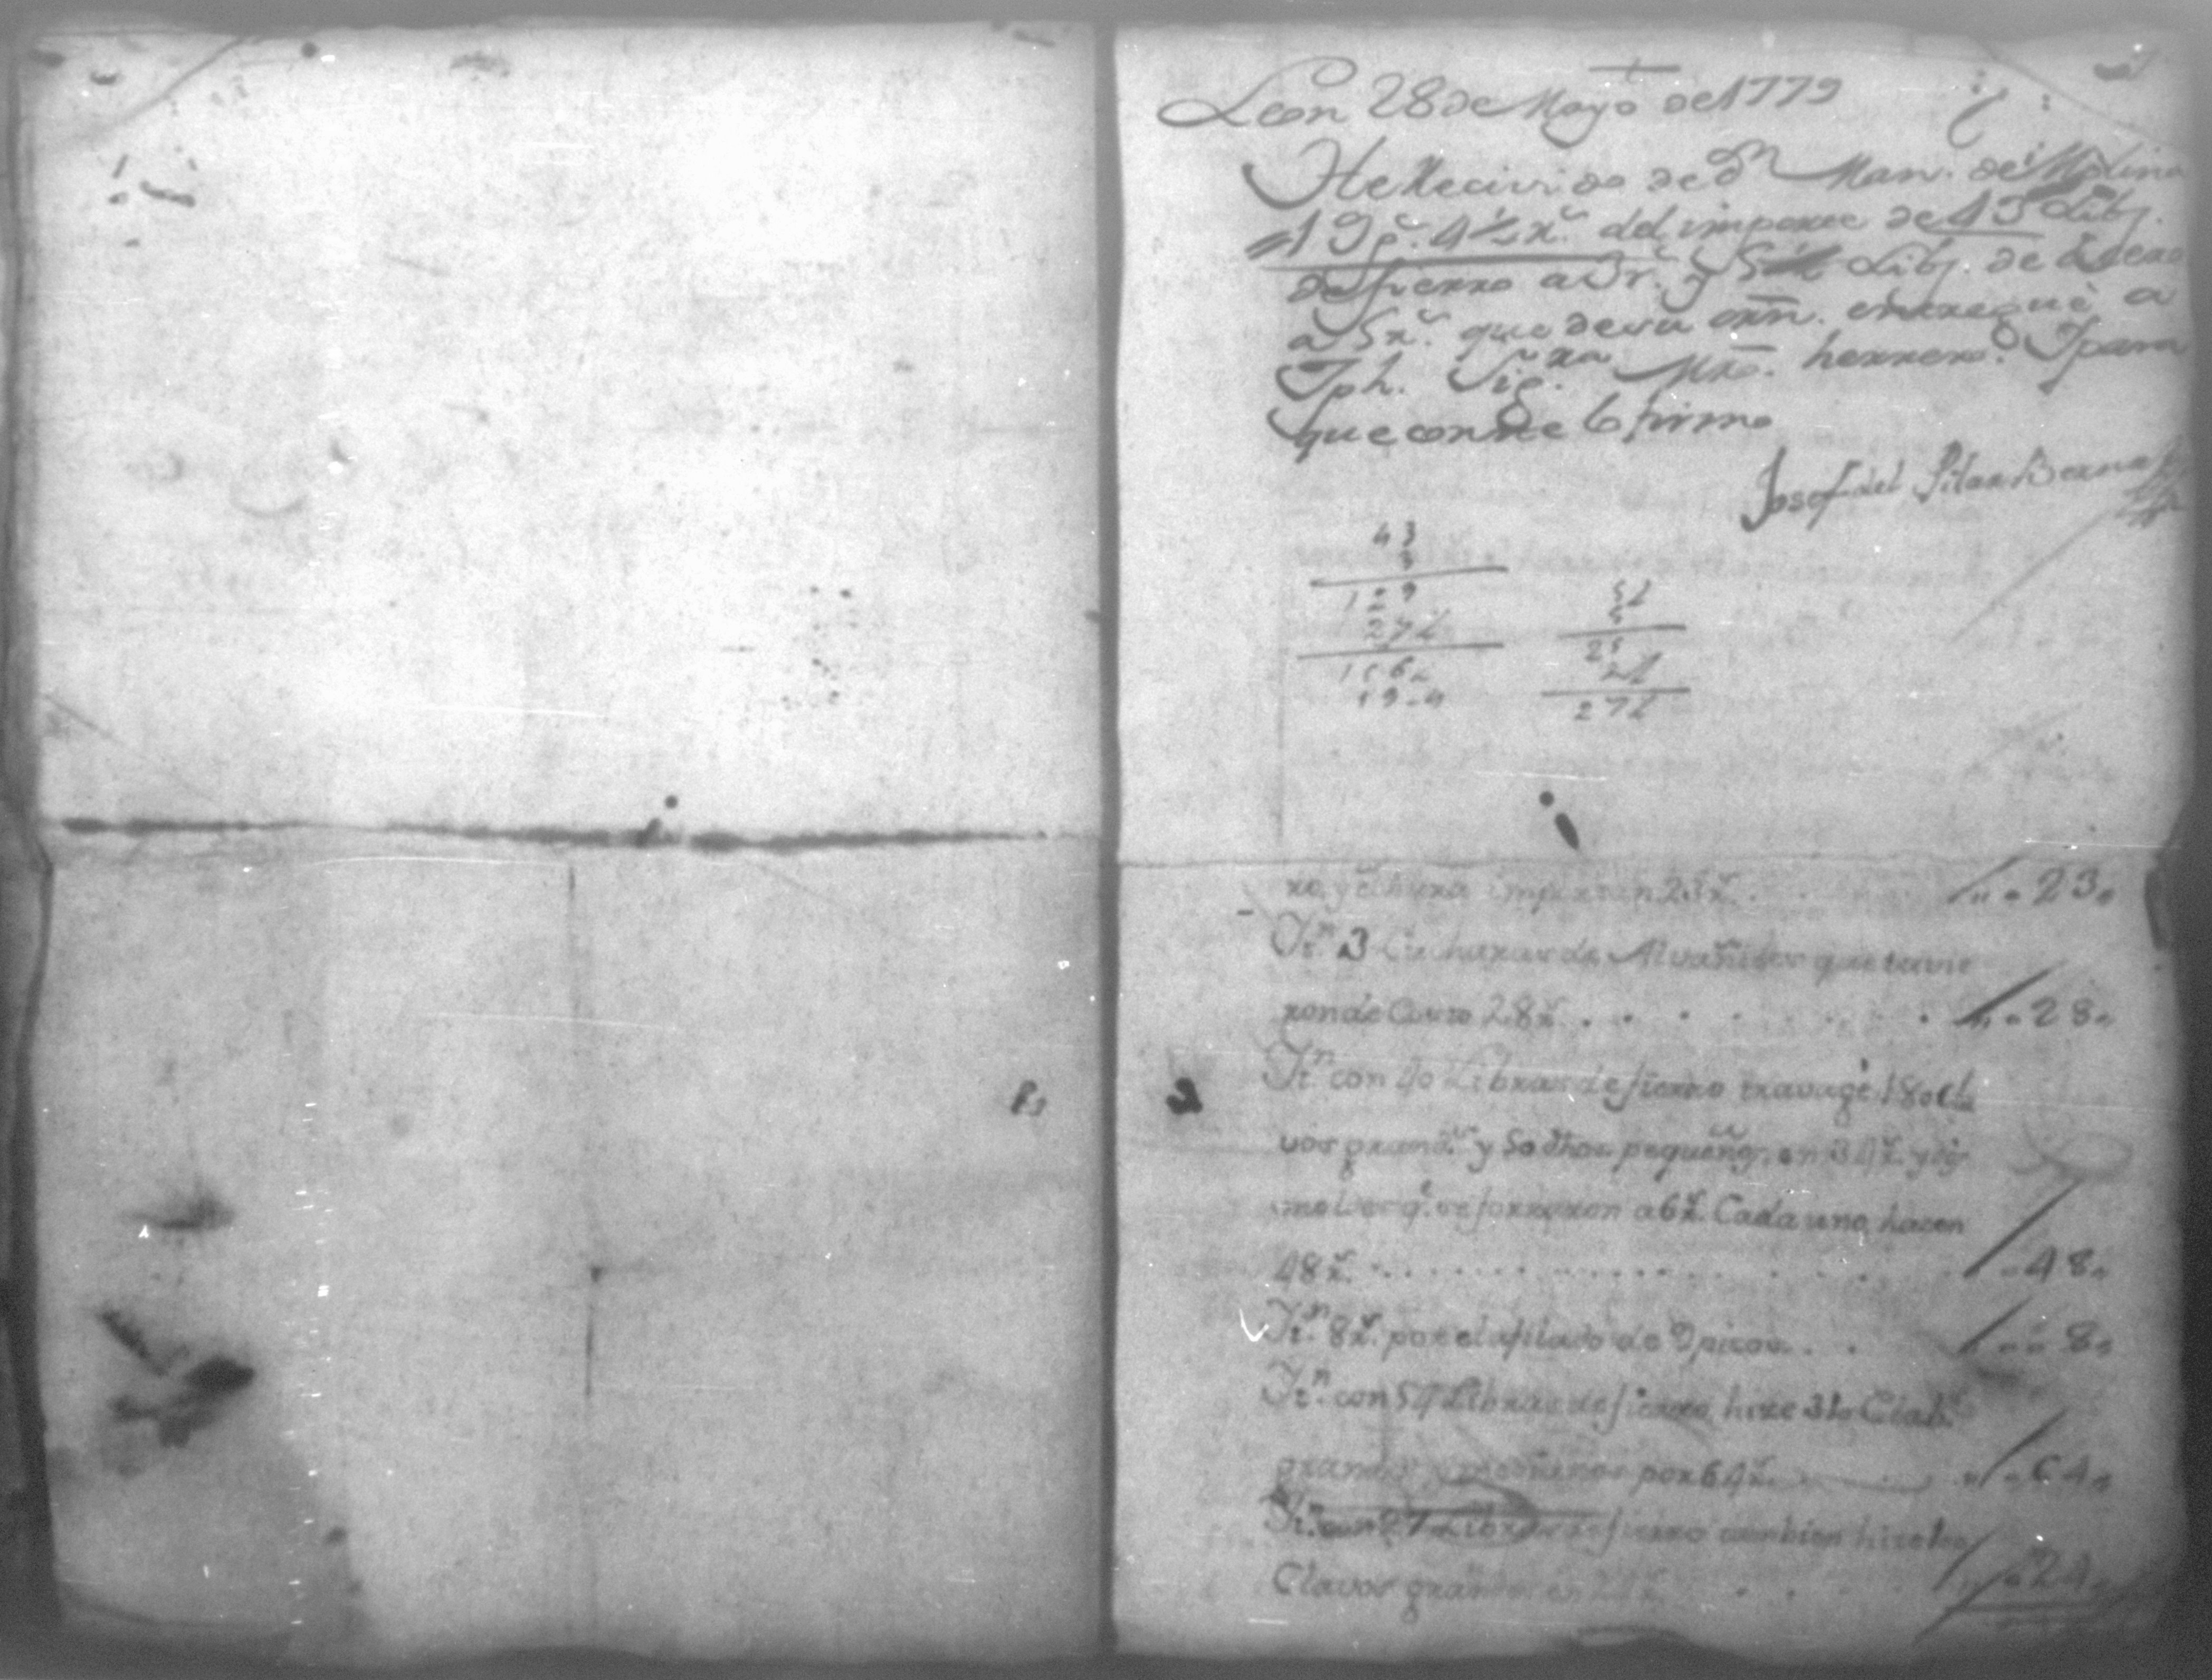 Leon 28 de Mayo de 1779
He Recivido de Dn Man. de Molina
19 ps. 4½ rs. del importe de 43 Libs.
de fierro a 3 rs. y 5½ Libs. de Azero
a 5 rs. que de su orn. entregué a
Jph. Mro. herrero. Y para
que conste lo firmo
Josef del Pilar Bernal
43
3
129
27½
156½
19-4
5½
5
25
2½
27½
ro, y echura importan 23 rs. 23
Itn. 3 Cucharas de Alvañiles que tuvie
ron de Costo 28 rs. 28
Itn. con 40 Libras de fierro travagé 180 Cla
vos grands. y 50 dhos. pequeños, en 34 rs. y
qe. se forraron a 6 rs. Cada uno, hacen
48 rs. 48
Itn. 8 rs. por el afilado de 9 picos 8
Itn. con 54 Libras de fierro, hize 310 Clabs.
grandes y pequeños por 64 rs. 64
Itn. con 27 Libras de fierro tambien hize
Clavos grandes en 24 rs. 24